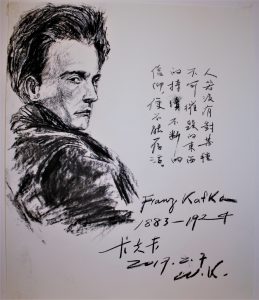 人若沒有對某種
不可摧毀的東西
的持續不斷的
信仰,便不能存活。
Franz Kafka
1883-1924
卡夫卡
2017.2.7
W.K.